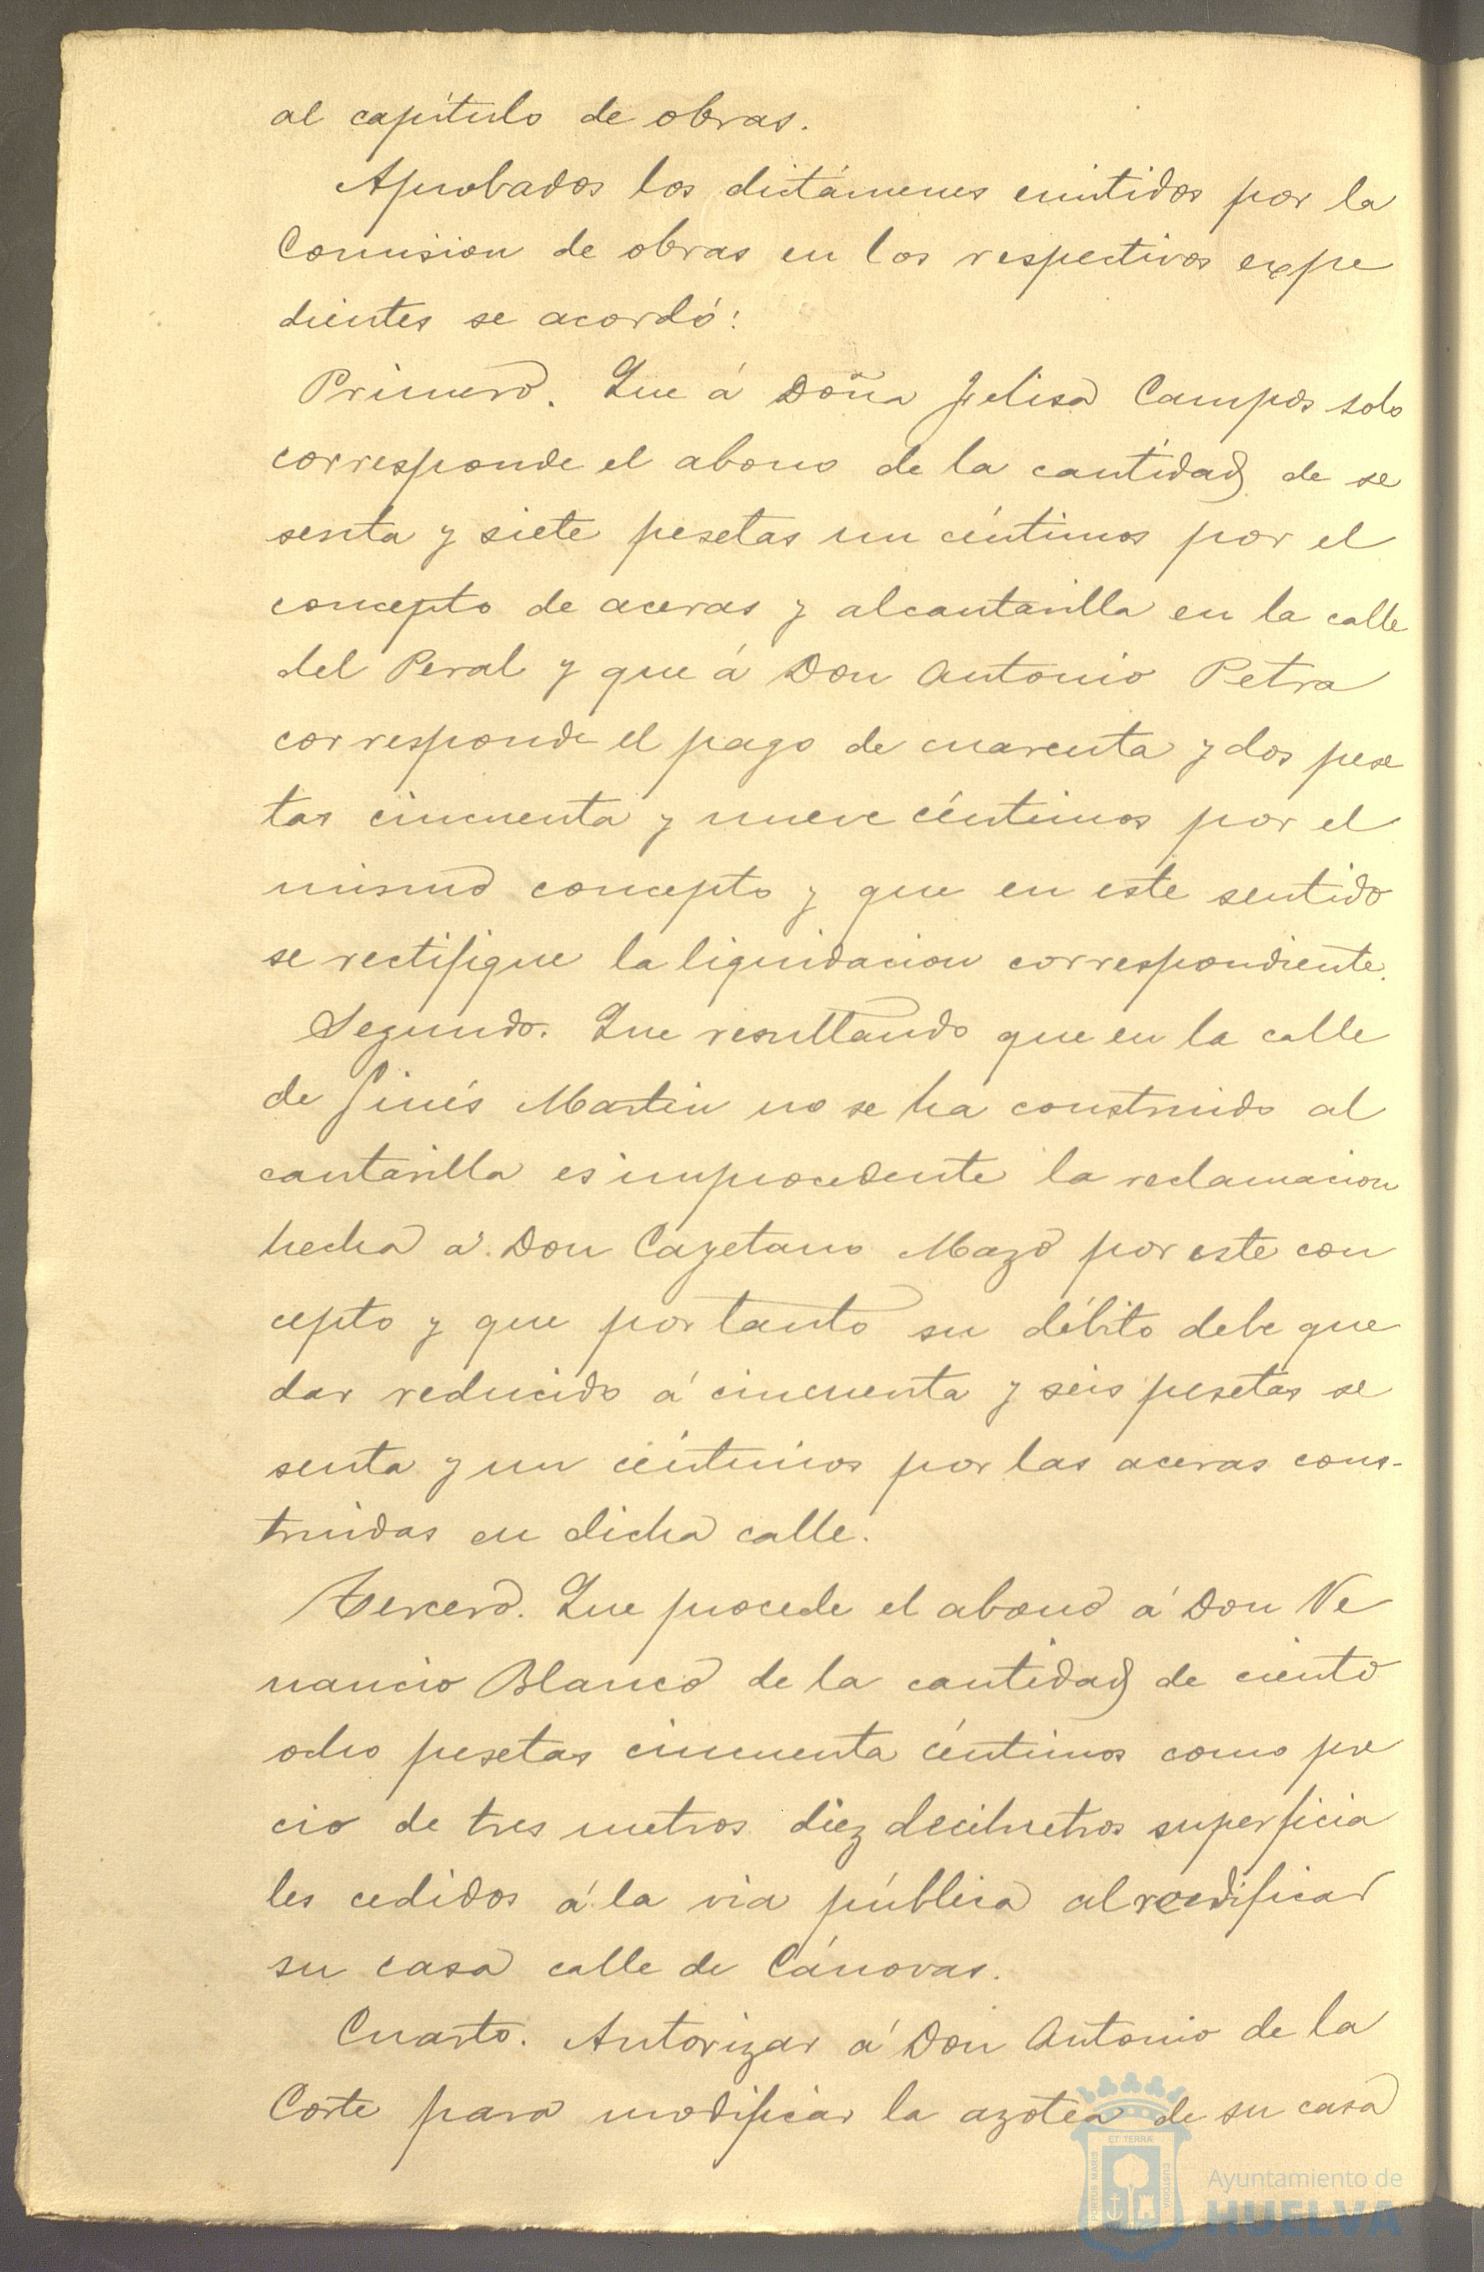 al capítulo de obras.
Aprobados los dictámenes emitidos por la
Comision de obras en los respectivos expe
dientes se acordó:
Primero. Que á Doña Felisa Campos solo
corresponde el abono de la cantidad de se
senta y siete pesetas un céntimos por el
concepto de aceras y alcantarilla en la calle
del Peral y que á Don Antonio Petra
corresponde el pago de cuarenta y dos pese
tas cincuenta y nueve céntimos por el
mismo concepto y que en este sentido
se rectifique la liquidacion correspondiente.
Segundo. Que resultando que en la calle
de Ginés Martin no se ha construido al
cantarilla es improcedente la reclamacion
hecha á Don Cayetano Mazo por este con
cepto y que por tanto su débito debe que
dar reducido á cincuenta y seis pesetas se
senta y un céntimos por las aceras cons-
truidas en dicha calle.
Tercero. Que procede el abono á Don Ve
nancio Blanco de la cantidad de ciento
ocho pesetas cincuenta céntimos como pre
cio de tres metros diez decímetros superficia
les cedidos á la via pública al reedificar
su casa calle de Cánovas.
Cuarto. Autorizar á Don Antonio de la
Corte para modificar la azotea de su casa
ET TERRÆ
PORTUS MARIS
CUSTODIA
Ayuntamiento de
HUELVA